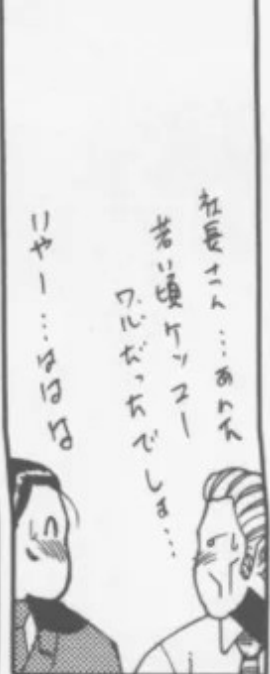 社長さん…あんた
若い頃ケッコー
ワルだったでしょ…
いやー…ははは